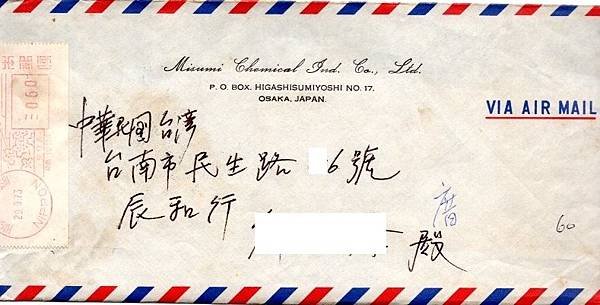 Misumi Chemical Ind. Co., Ltd.
P. O. BOX. HIGASHISUMIYOSHI NO. 17.
OSAKA, JAPAN.
VIA AIR MAIL
中華民国台湾
台南市民生路 6號
辰和行
殿
60
060
NIPPON